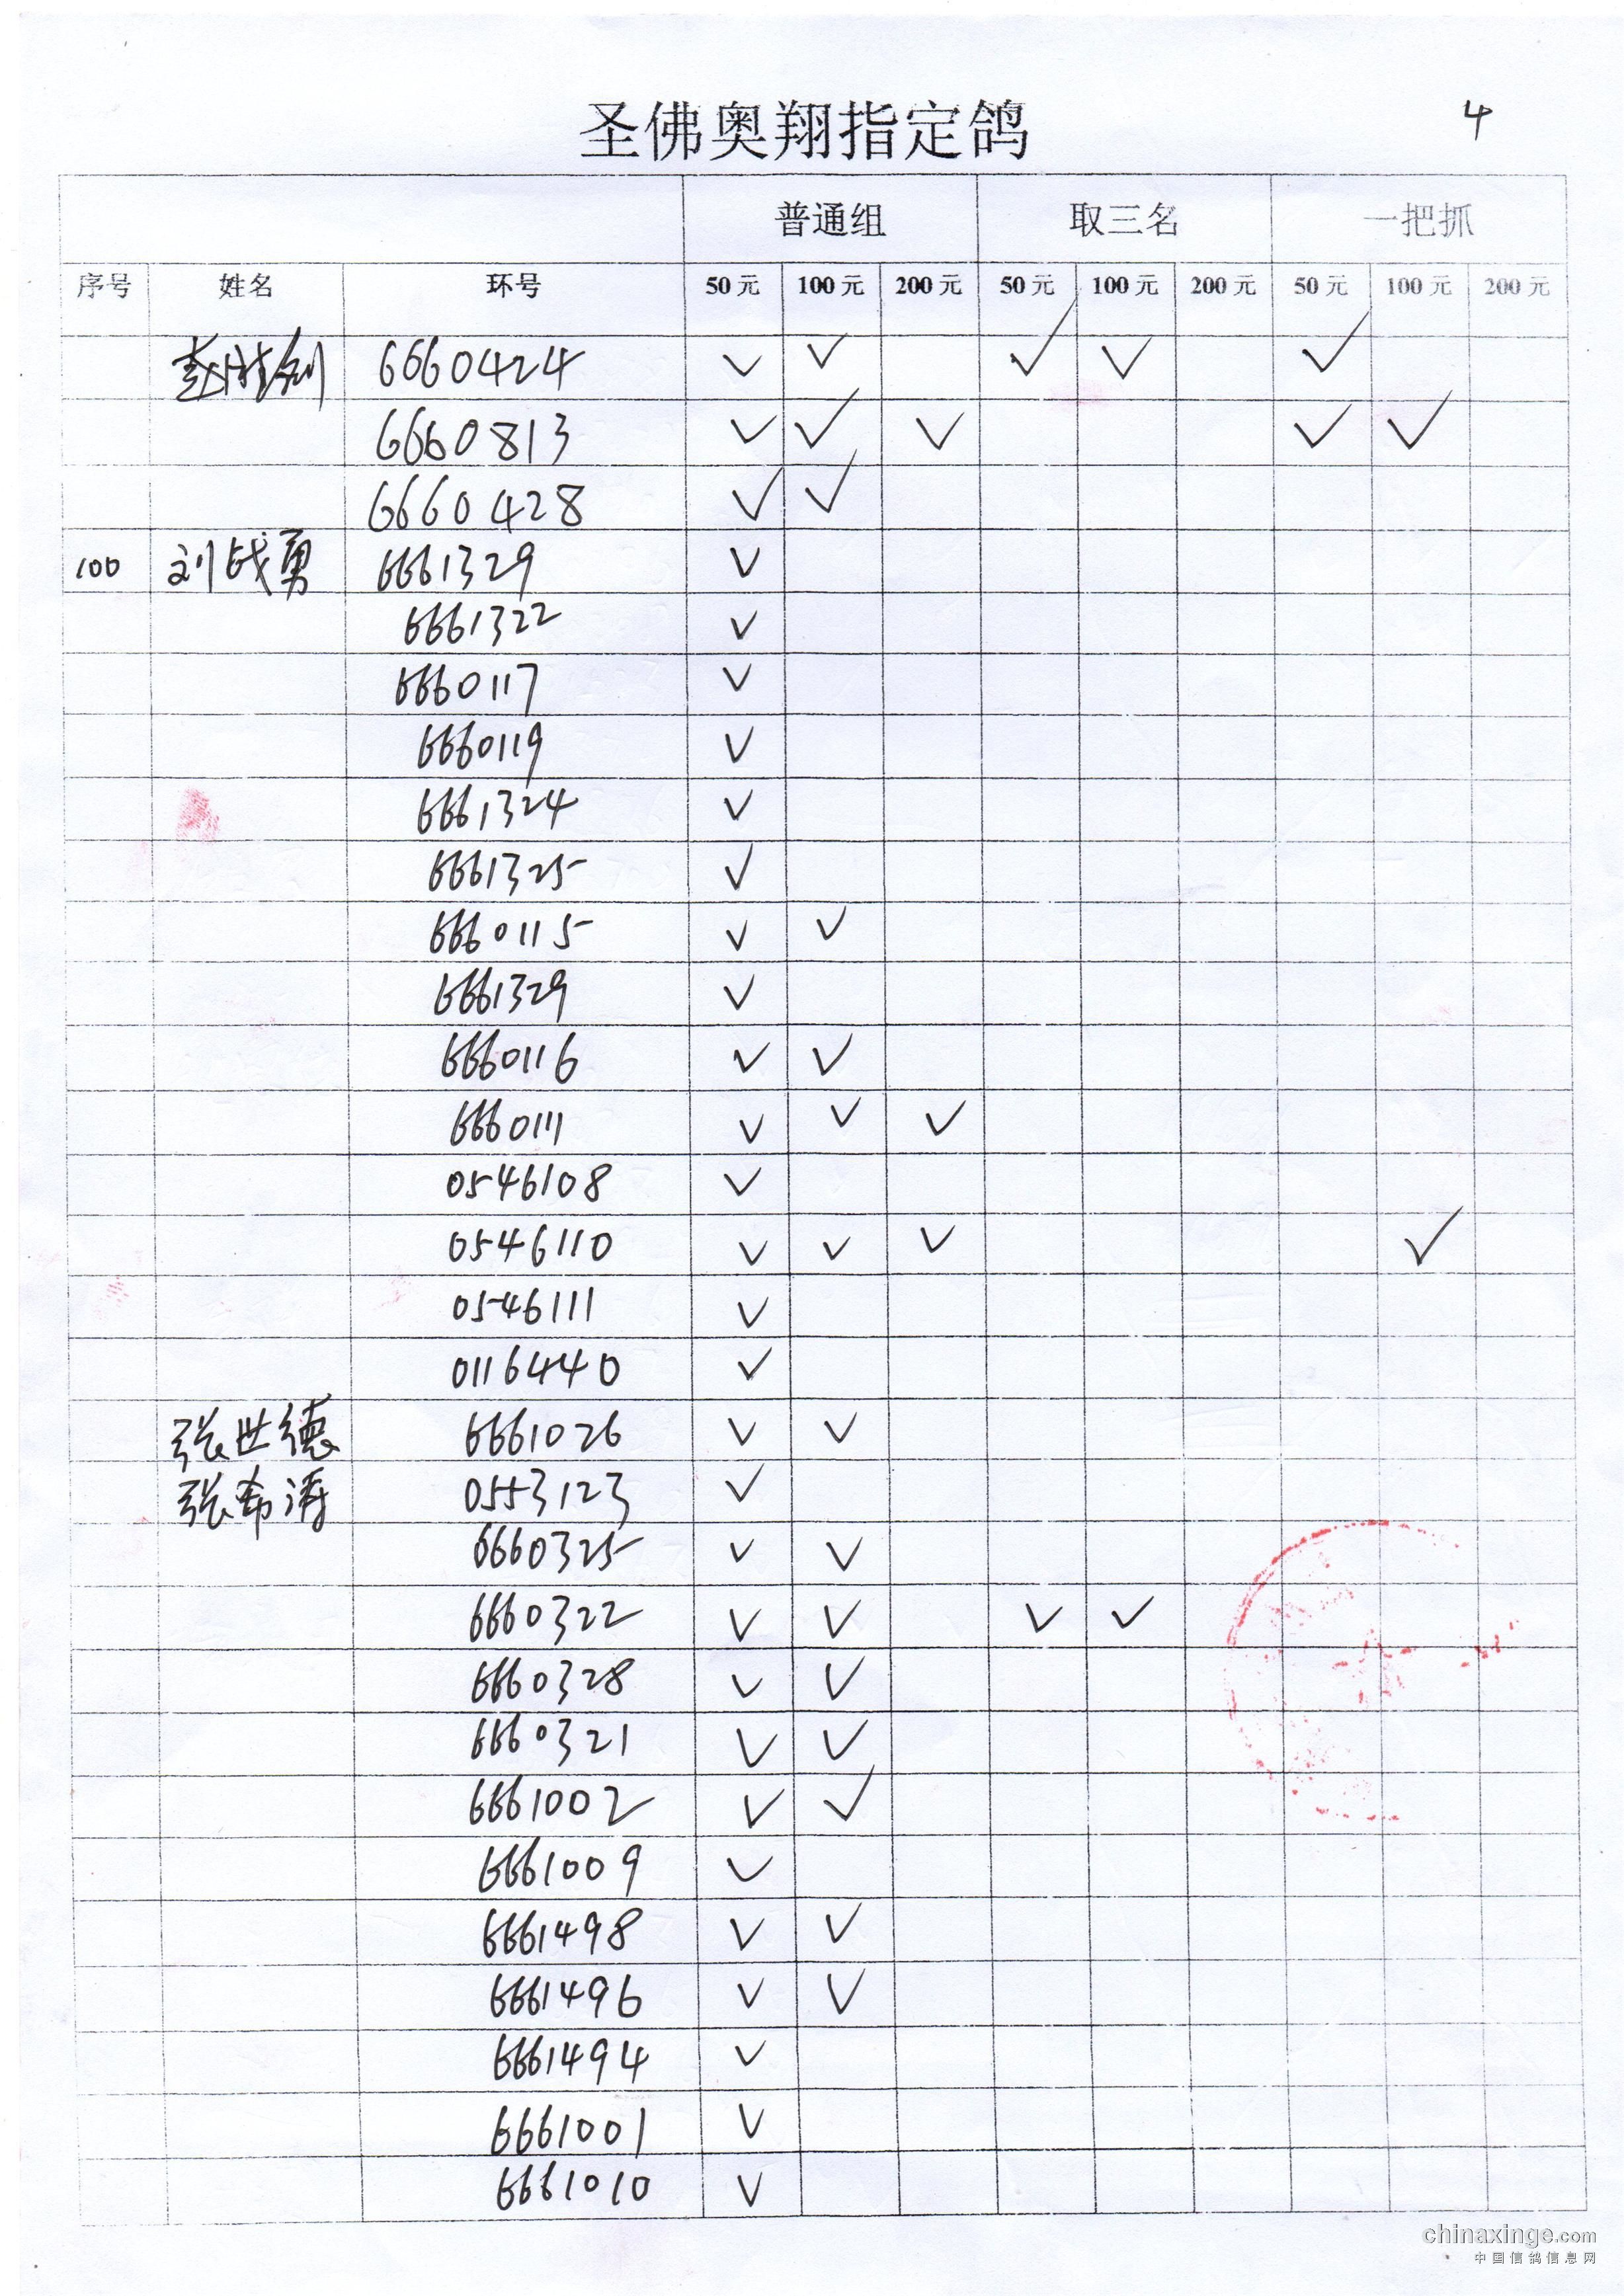 圣佛奥翔指定鸽 4
普通组 取三名 一把抓
序号 姓名 环号 50元 100元 200元 50元 100元 200元 50元 100元 200元
6660424 ✓ ✓ ✓ ✓ ✓
6660813 ✓ ✓ ✓ ✓ ✓
6660428 ✓ ✓
100 刘战勇 6661329 ✓
6661322 ✓
6660117 ✓
6660119 ✓
6661324 ✓
6661325 ✓
6660115 ✓ ✓
6661329 ✓
6660116 ✓ ✓
6660111 ✓ ✓ ✓
0546108 ✓
0546110 ✓ ✓ ✓ ✓
0546111 ✓
0116440 ✓
张世德 6661026 ✓ ✓
张希涛 0553123 ✓
6660325 ✓ ✓
6660322 ✓ ✓ ✓ ✓
6660328 ✓ ✓
6660321 ✓ ✓
6661002 ✓ ✓
6661009 ✓
6661498 ✓ ✓
6661496 ✓ ✓
6661494 ✓
6661001 ✓
6661010 ✓
chinaxinge.com
中国信鸽信息网